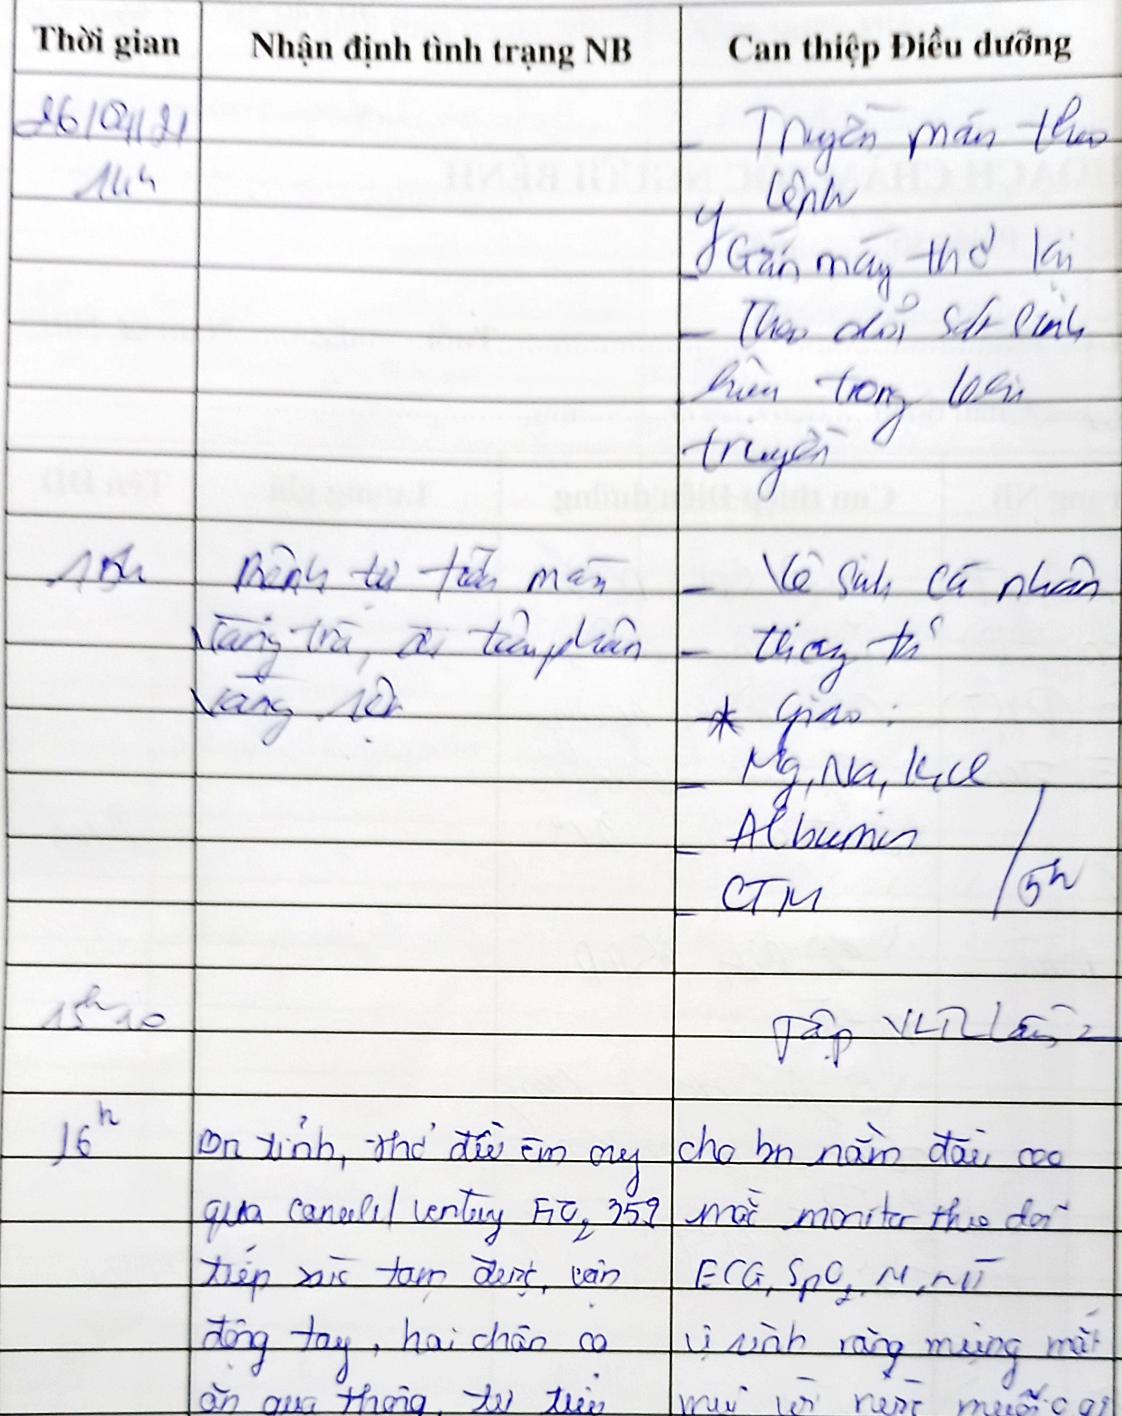 Thời gian
Nhận định tình trạng NB
Can thiệp Điều dưỡng
26/04/21
14h
- Truyền máu theo
y lệnh
- Gắn máy thở lại
- Theo dõi sát sinh
hiệu trong
truyền
15h
Bệnh tự tiểu
vàng trà, tiêu phân
vàng
- Vệ sinh cá nhân
- thay
* Giao:
- Mg, Na, K, Cl
- Albumin
- CTM
/5h
15h10
Tập VLTL lần 2
16h
Bn tỉnh, thở đều êm oxy
qua canuyl/ventury FiO2 35%
tiếp xúc tạm được, vận
động tay, hai chân co
ăn qua thông, tự tiểu
cho bn nằm đầu cao
mắc monitor theo dõi
ECG, SpO2, M, HA
vệ sinh răng miệng mắt
mũi với nước muối